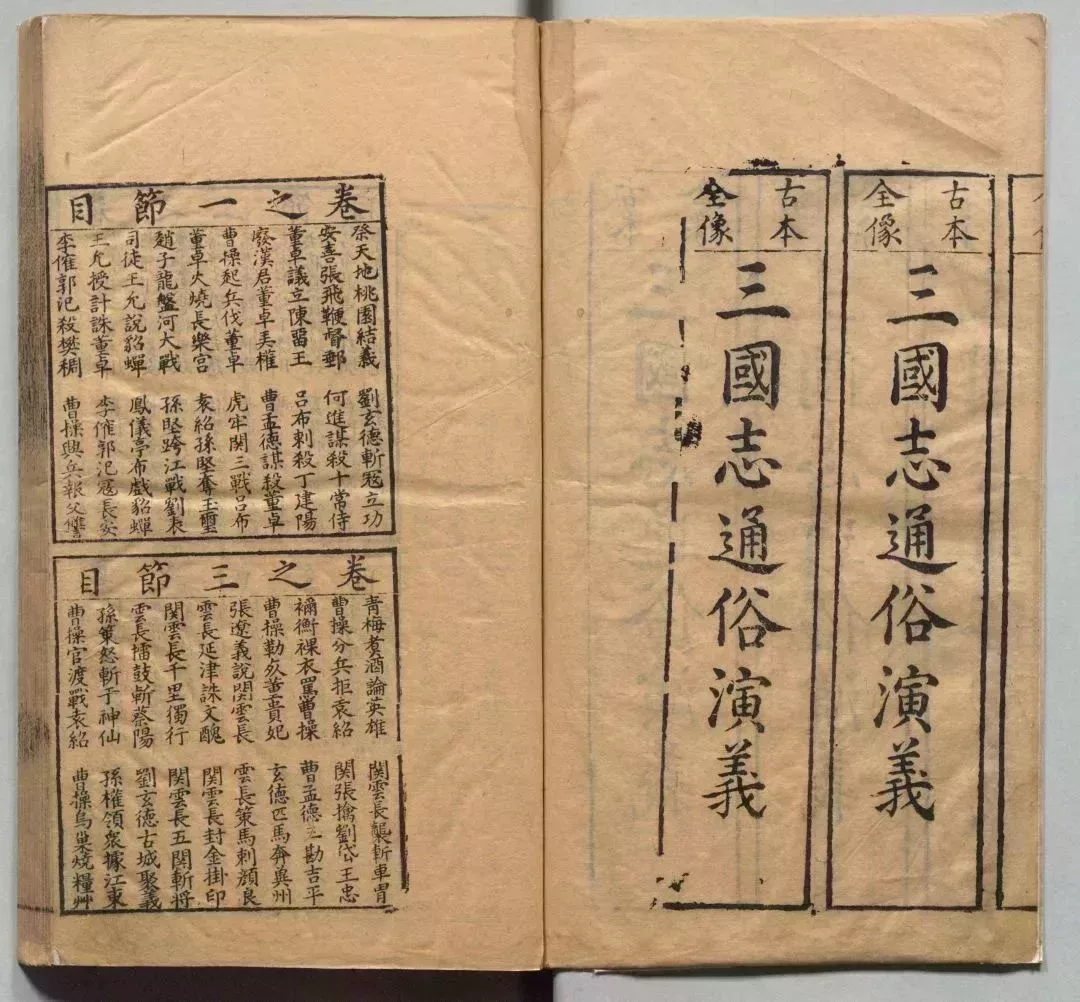 古本
全像
三國志通俗演義
古本
全像
三國志通俗演義
卷之一節目
祭天地桃園結義
劉玄德斬寇立功
安喜張飛鞭督郵
何進謀殺十常侍
董卓議立陳留王
呂布刺殺丁建陽
廢漢君董卓弄權
曹孟德謀殺董卓
曹操起兵伐董卓
虎牢関三戰呂布
董卓火燒長樂宮
袁紹孫堅奪玉璽
趙子龍盤河大戰
孫堅跨江戰劉表
司徒王允說貂蟬
鳳儀亭布戲貂蟬
王允授計誅董卓
李傕郭汜寇長安
李傕郭汜殺樊稠
曹操興兵報父讐
卷之三節目
青梅煑酒論英雄
関雲長襲斬車冑
曹操分兵拒袁紹
関張擒劉岱王忠
禰衡裸衣罵曹操
曹孟德三勘吉平
曹操勒死董貴妃
玄德匹馬奔冀州
張遼義說関雲長
雲長策馬刺顏良
雲長延津誅文醜
関雲長封金掛印
関雲長千里獨行
関雲長五関斬將
雲長擂鼓斬蔡陽
劉玄德古城聚義
孫策怒斬于神仙
孫權領衆據江東
曹操官渡戰袁紹
曹操烏巢燒糧艸